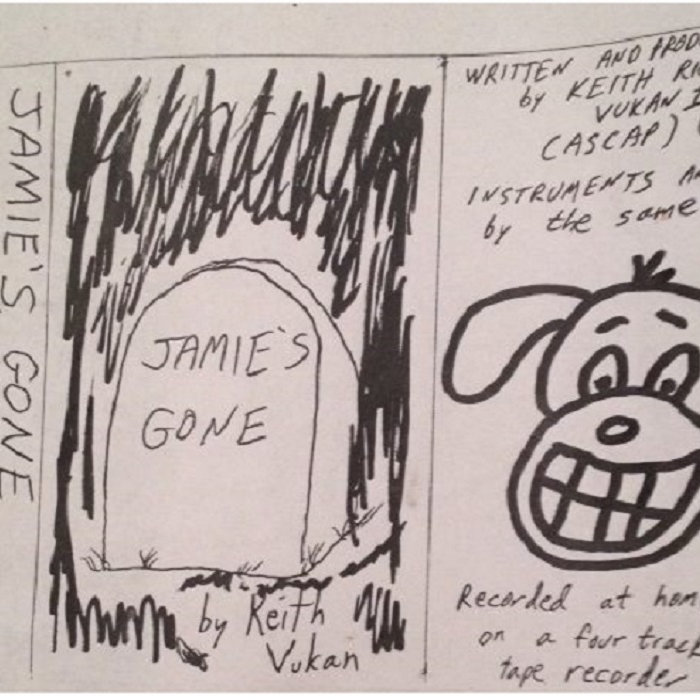 JAMIE'S GONE
JAMIE'S
GONE
by Keith
Vukan
WRITTEN AND
by KEITH
VUKAN
(ASCAP)
INSTRUMENTS
by the same
Recorded at
on a four track
tape recorder